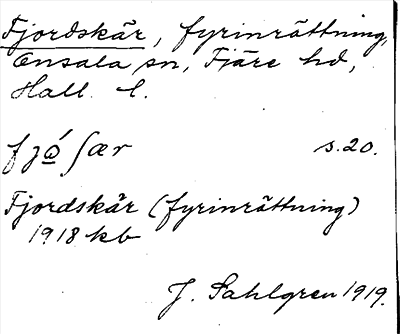 Fjordskär, fyrinrättning,
Onsala sn, Fjäre hd,
Hall. l.
s. 20.
Fjordskär (fyrinrättning)
1918 kb
J. Sahlgren 1919.